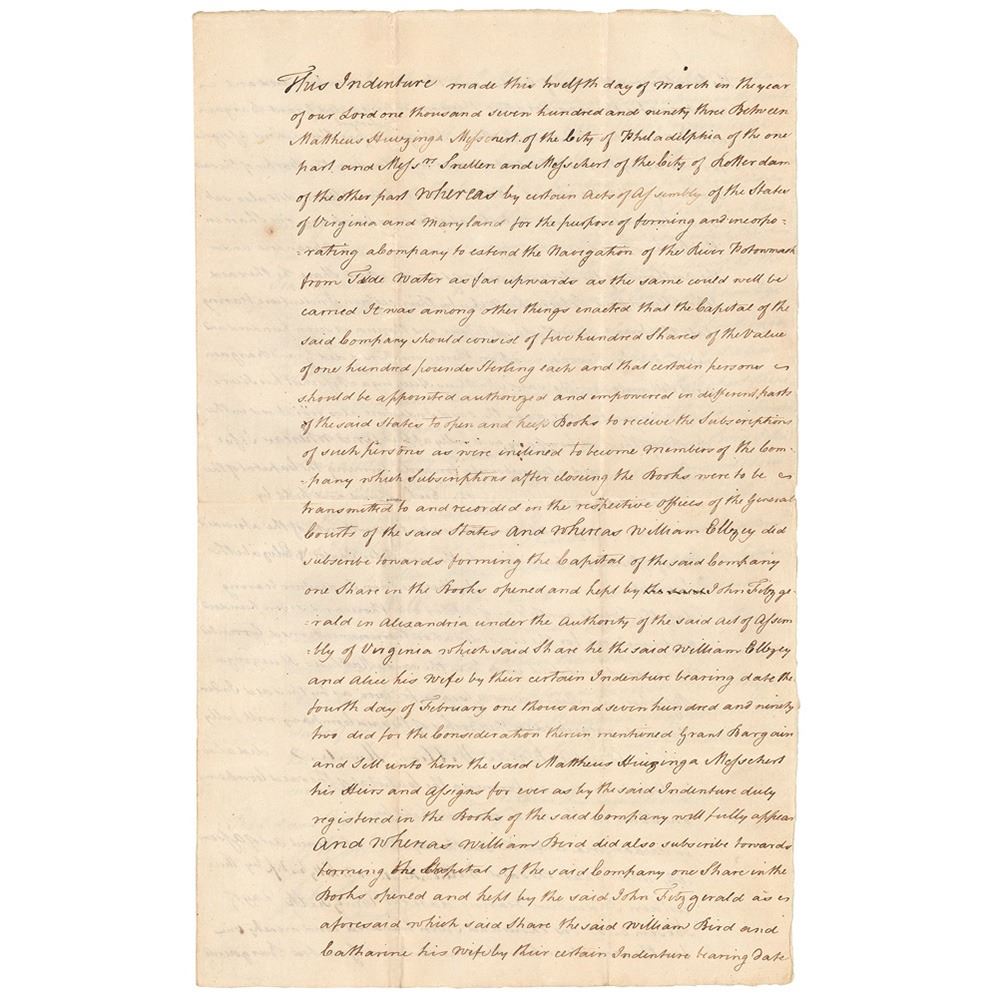 This Indenture made this twelfth day of March in the year
of our Lord one thousand seven hundred and ninety three Between
Mattheus Huizinga Messchert of the City of Philadilphia of the one
part and Mess.rs Snellen and Messchert of the City of Rotterdam
of the other part Whereas by certain Acts of Assembly of the States
of Virginia and Maryland for the purpose of forming and incorpo-
-rating a Company to extend the Navigation of the River Potowmack
from Tide Water as far upwards as the same could will be
carried It was among other things enacted that the Capital of the
said Company should consist of five hundred Shares of the Value
of one hundred pounds Sterling each and that certain persons
should be appointed authorized and empowered in different parts
of the said States to open and keep Books to receive the Subscriptions
of such persons as were inclined to become members of the Com-
-pany which Subscriptions after closeing the Books were to be
transmitted to and recorded in the respective Offices of the General
Courts of the said States And whereas William Ellzey did
subscribe towards forming the Capital of the said Company
one Share in the Books opened and kept by the said John Fitzge-
-rald in Alexandria under the Authority of the said Act of Assem-
-bly of Virginia which said Share he the said William Ellzey
and Alice his Wife by their certain Indenture bearing date the
fourth day of February one thousand seven hundred and ninety
two did for the Consideration therein mentioned Grant Bargain
and Sell unto him the said Mattheus Huizinga Messchert
his Heirs and Assigns for ever as by the said Indenture duly
registered in the Books of the said Company will fully appear
And whereas William Bird did also subscribe towards
forming the Capital of the said Company one Share in the
Books opened and kept by the said John Fitzgerald as is
aforesaid which said Share the said William Bird and
Catharine his Wife by their certain Indenture bearing date